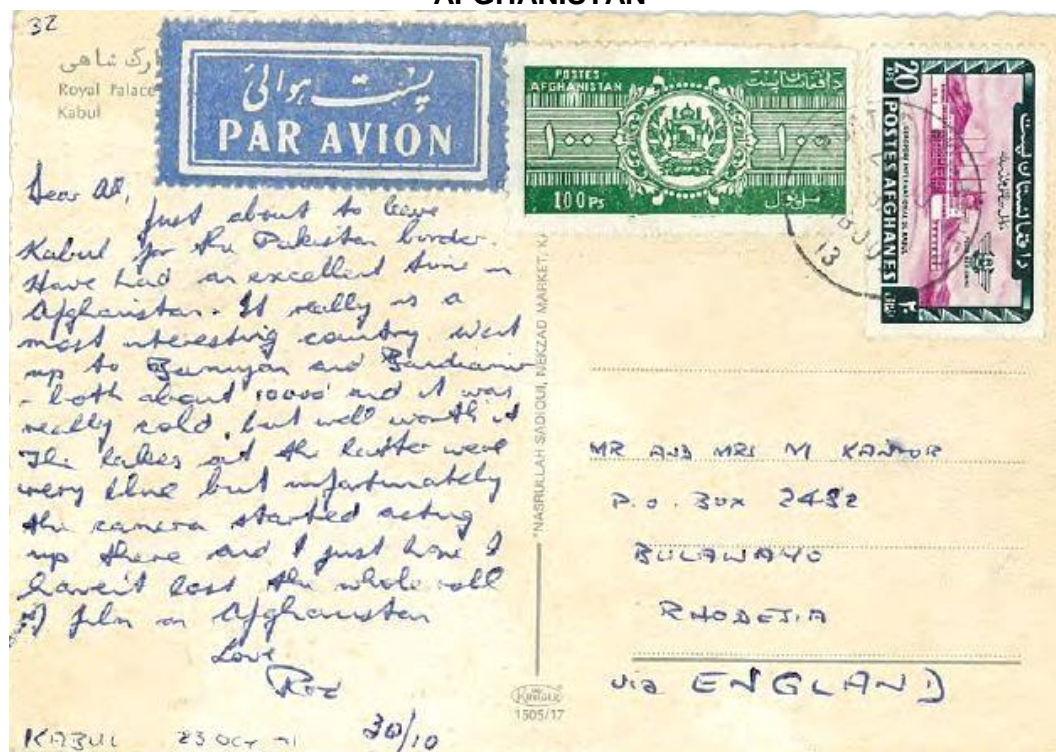 AFGHANISTAN
32
ارک شاهی
Royal Palace
Kabul
پست هوائی
PAR AVION
POSTES
AFGHANISTAN
د افغانستان پست
١٠٠
١٠٠
100 Ps
20
POSTES AFGHANES
د افغانستان پست
٢٠
13
Dear All,
Just about to leave
Kabul for the Pakistan border.
Have had an excellent time in
Afghanistan. It really is a
most interesting country. Went
up to Bamiyan and
- both about 10000' and it was
really cold, but well worth it
The lakes at the latter were
very blue but unfortunately
the camera started acting
up there and I just hope I
haven't lost the whole roll
of film on Afghanistan
Love
KABUL 23 OCT 71 30/10
"NASRULLAH SADIQUI, NEKZAD MARKET,
1505/17
MR AND MRS M KANTOR
P.O. BOX 2482
BULAWAYO
RHODESIA
via ENGLAND